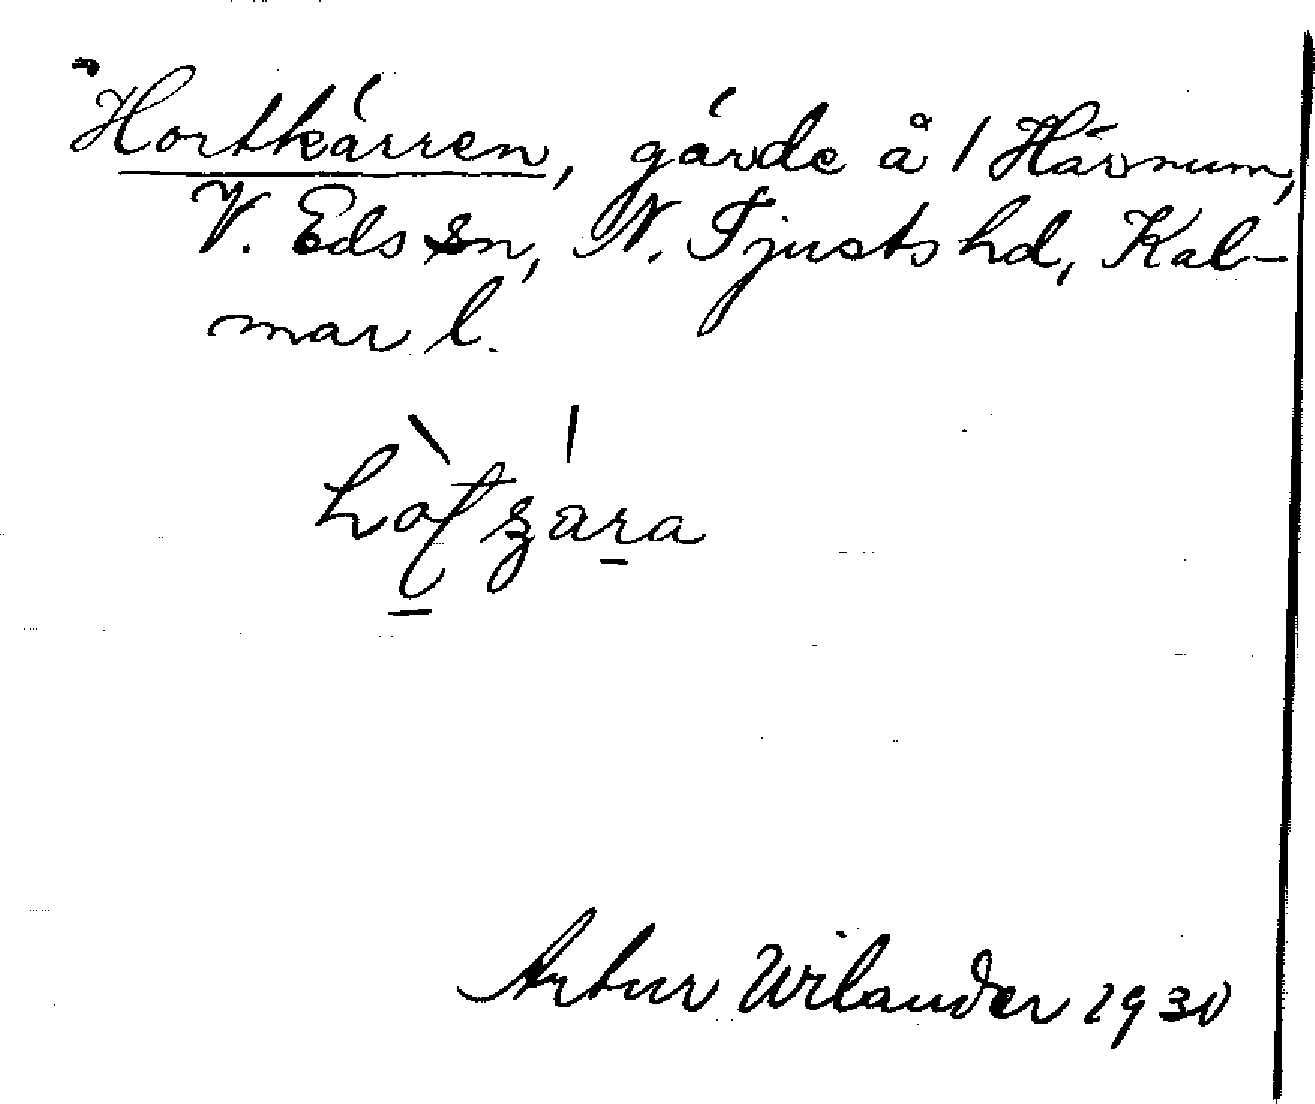 Hortkärren, gärde å 1 Hävnum,
V. Eds sn, N. Tjusts hd, Kal-
mar l.
Artur Wilander 1930